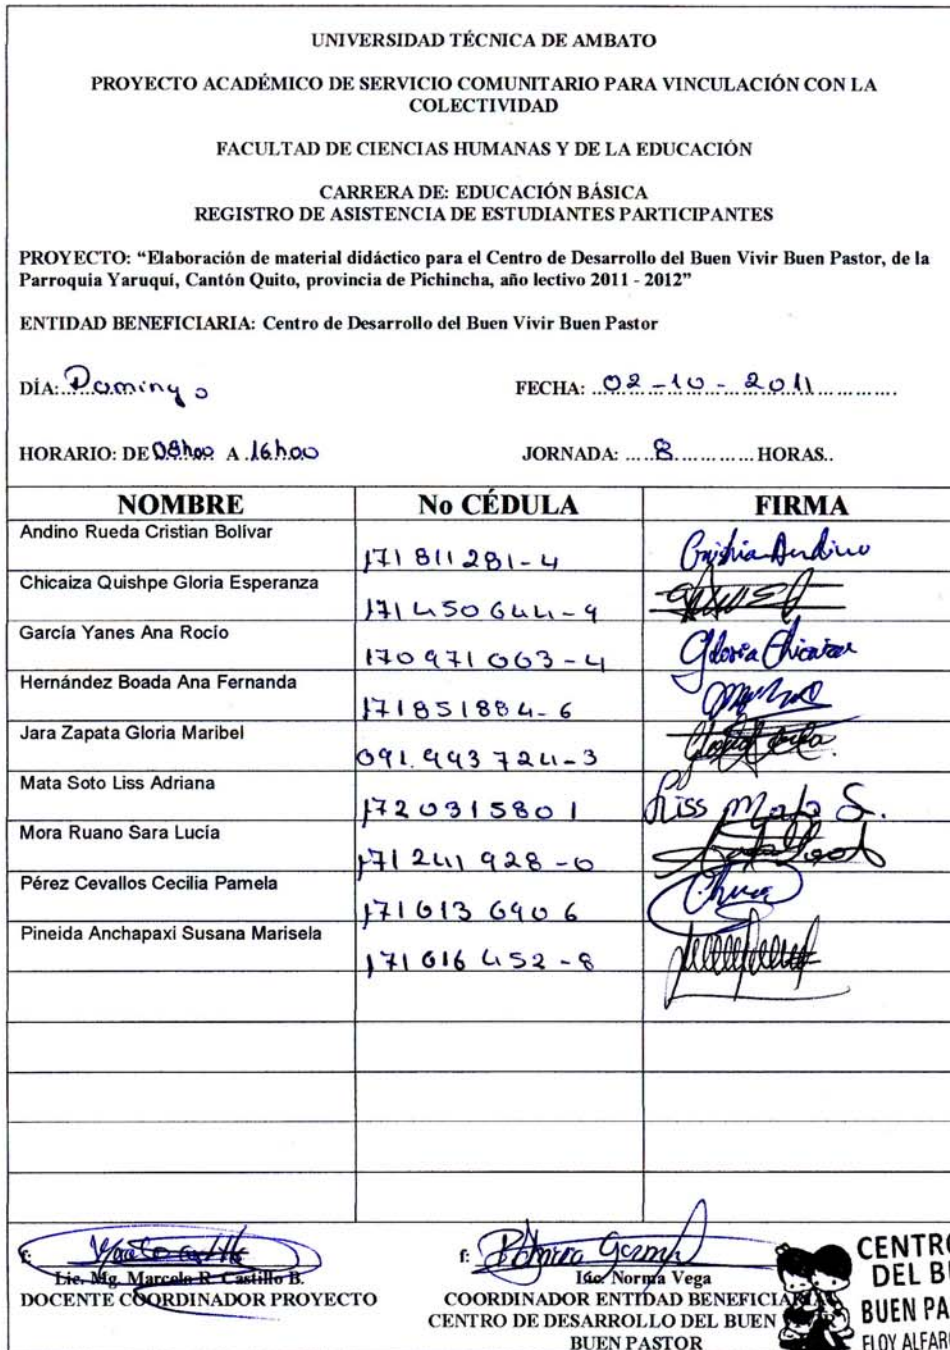 UNIVERSIDAD TÉCNICA DE AMBATO
PROYECTO ACADÉMICO DE SERVICIO COMUNITARIO PARA VINCULACIÓN CON LA
COLECTIVIDAD
FACULTAD DE CIENCIAS HUMANAS Y DE LA EDUCACIÓN
CARRERA DE: EDUCACIÓN BÁSICA
REGISTRO DE ASISTENCIA DE ESTUDIANTES PARTICIPANTES
PROYECTO: “Elaboración de material didáctico para el Centro de Desarrollo del Buen Vivir Buen Pastor, de la
Parroquia Yaruquí, Cantón Quito, provincia de Pichincha, año lectivo 2011 - 2012”
ENTIDAD BENEFICIARIA: Centro de Desarrollo del Buen Vivir Buen Pastor
DÍA: Domingo FECHA: 02-10-2011
HORARIO: DE 08h00 A 16h00 JORNADA: 8 HORAS..
NOMBRE No CÉDULA FIRMA
Andino Rueda Cristian Bolívar 171811281-4 Cristian Andino
Chicaiza Quishpe Gloria Esperanza 171450644-9
García Yanes Ana Rocío 170971063-4 Gloria Chicaiza
Hernández Boada Ana Fernanda 171851884-6
Jara Zapata Gloria Maribel 091993724-3
Mata Soto Liss Adriana 1720315801 Liss Mata S.
Mora Ruano Sara Lucía 171241928-0
Pérez Cevallos Cecilia Pamela 1710136906
Pineida Anchapaxi Susana Marisela 171616452-8
f: f:
Lic. Mg. Marcelo R. Castillo B. Lic. Norma Vega
DOCENTE COORDINADOR PROYECTO COORDINADOR ENTIDAD BENEFICIARIA
CENTRO DE DESARROLLO DEL BUEN
BUEN PASTOR
CENTRO
DEL BU
BUEN PA
ELOY ALFAR